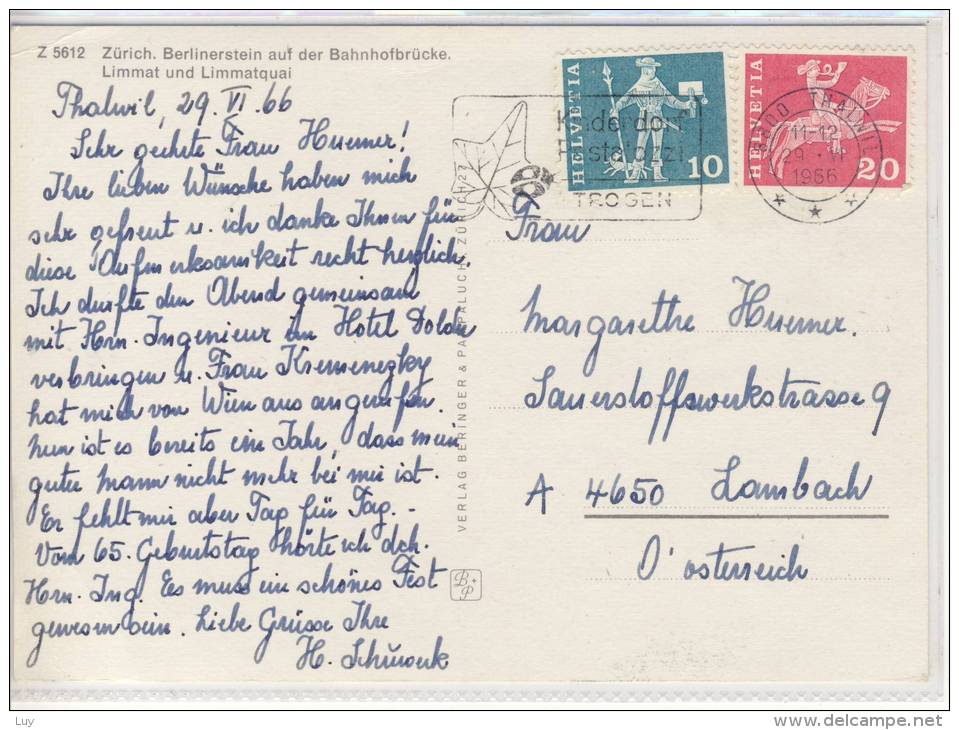 Z 5612 Zürich. Berlinerstein auf der Bahnhofbrücke.
Limmat und Limmatquai
Thalwil, 29. VI. 66
Sehr geehrte Frau Huemer!
Ihre lieben Wünsche haben mich
sehr gefreut u. ich danke Ihnen für
diese Aufmerksamkeit recht herzlich.
Ich durfte den Abend gemeinsam
mit Hrn. Ingenieur im Hotel Dolder
verbringen u. Frau Kremenezky
hat mich von Wien aus angerufen.
Nun ist es bereits ein Jahr, dass mein
guter Mann nicht mehr bei mir ist.
Er fehlt mir aber Tag für Tag. -
Vom 65. Geburtstag hörte ich dch.
Hrn. Ing. Es muss ein schönes Fest
gewesen sein. Liebe Grüsse Ihre
H.
VERLAG BERINGER & PAMPALUCHI ZÜRICH 27
B+P
Kinderdorf
Pestalozzi
TROGEN
HELVETIA
10
HELVETIA
20
8800 THALWIL
11-12
29. VI
1966
Frau
Margarethe Huemer.
Sauerstoffwerkstrasse 9
A 4650 Lambach
O'österreich
Luy
www.delcampe.net